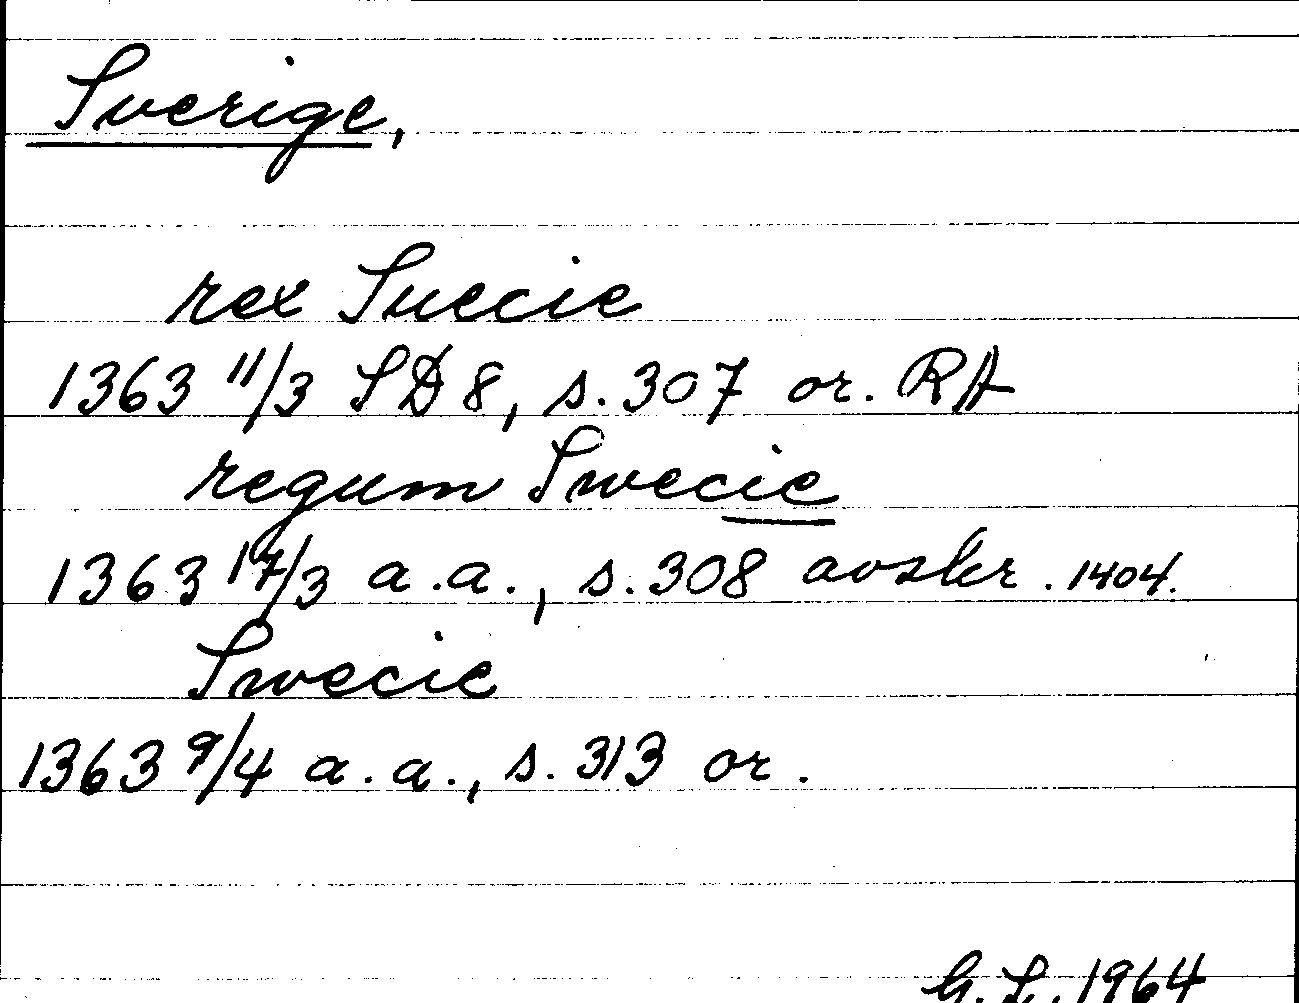 Sverige,
rex Suecie
1363 11/3 SD 8, s. 307 or. RA
regum Swecie
1363 17/3 a.a., s. 308 avskr. 1404.
Swecie
1363 9/4 a.a., s. 313 or.
G. L. 1964